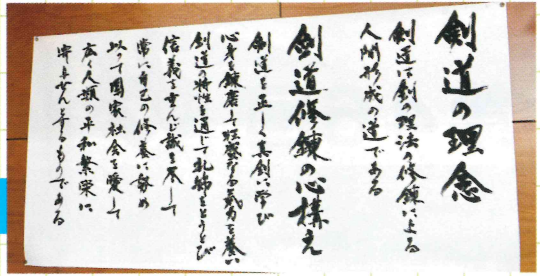 剣道の理念
剣道は剣の理法の修錬による
人間形成の道である
剣道修錬の心構え
剣道を正しく真剣に学び
心身を錬磨して旺盛なる気力を養い
剣道の特性を通じて礼節をとうとび
信義を重んじ誠を尽して
常に自己の修養に努め
以って国家社会を愛して
広く人類の平和繁栄に
寄与せんとするものである